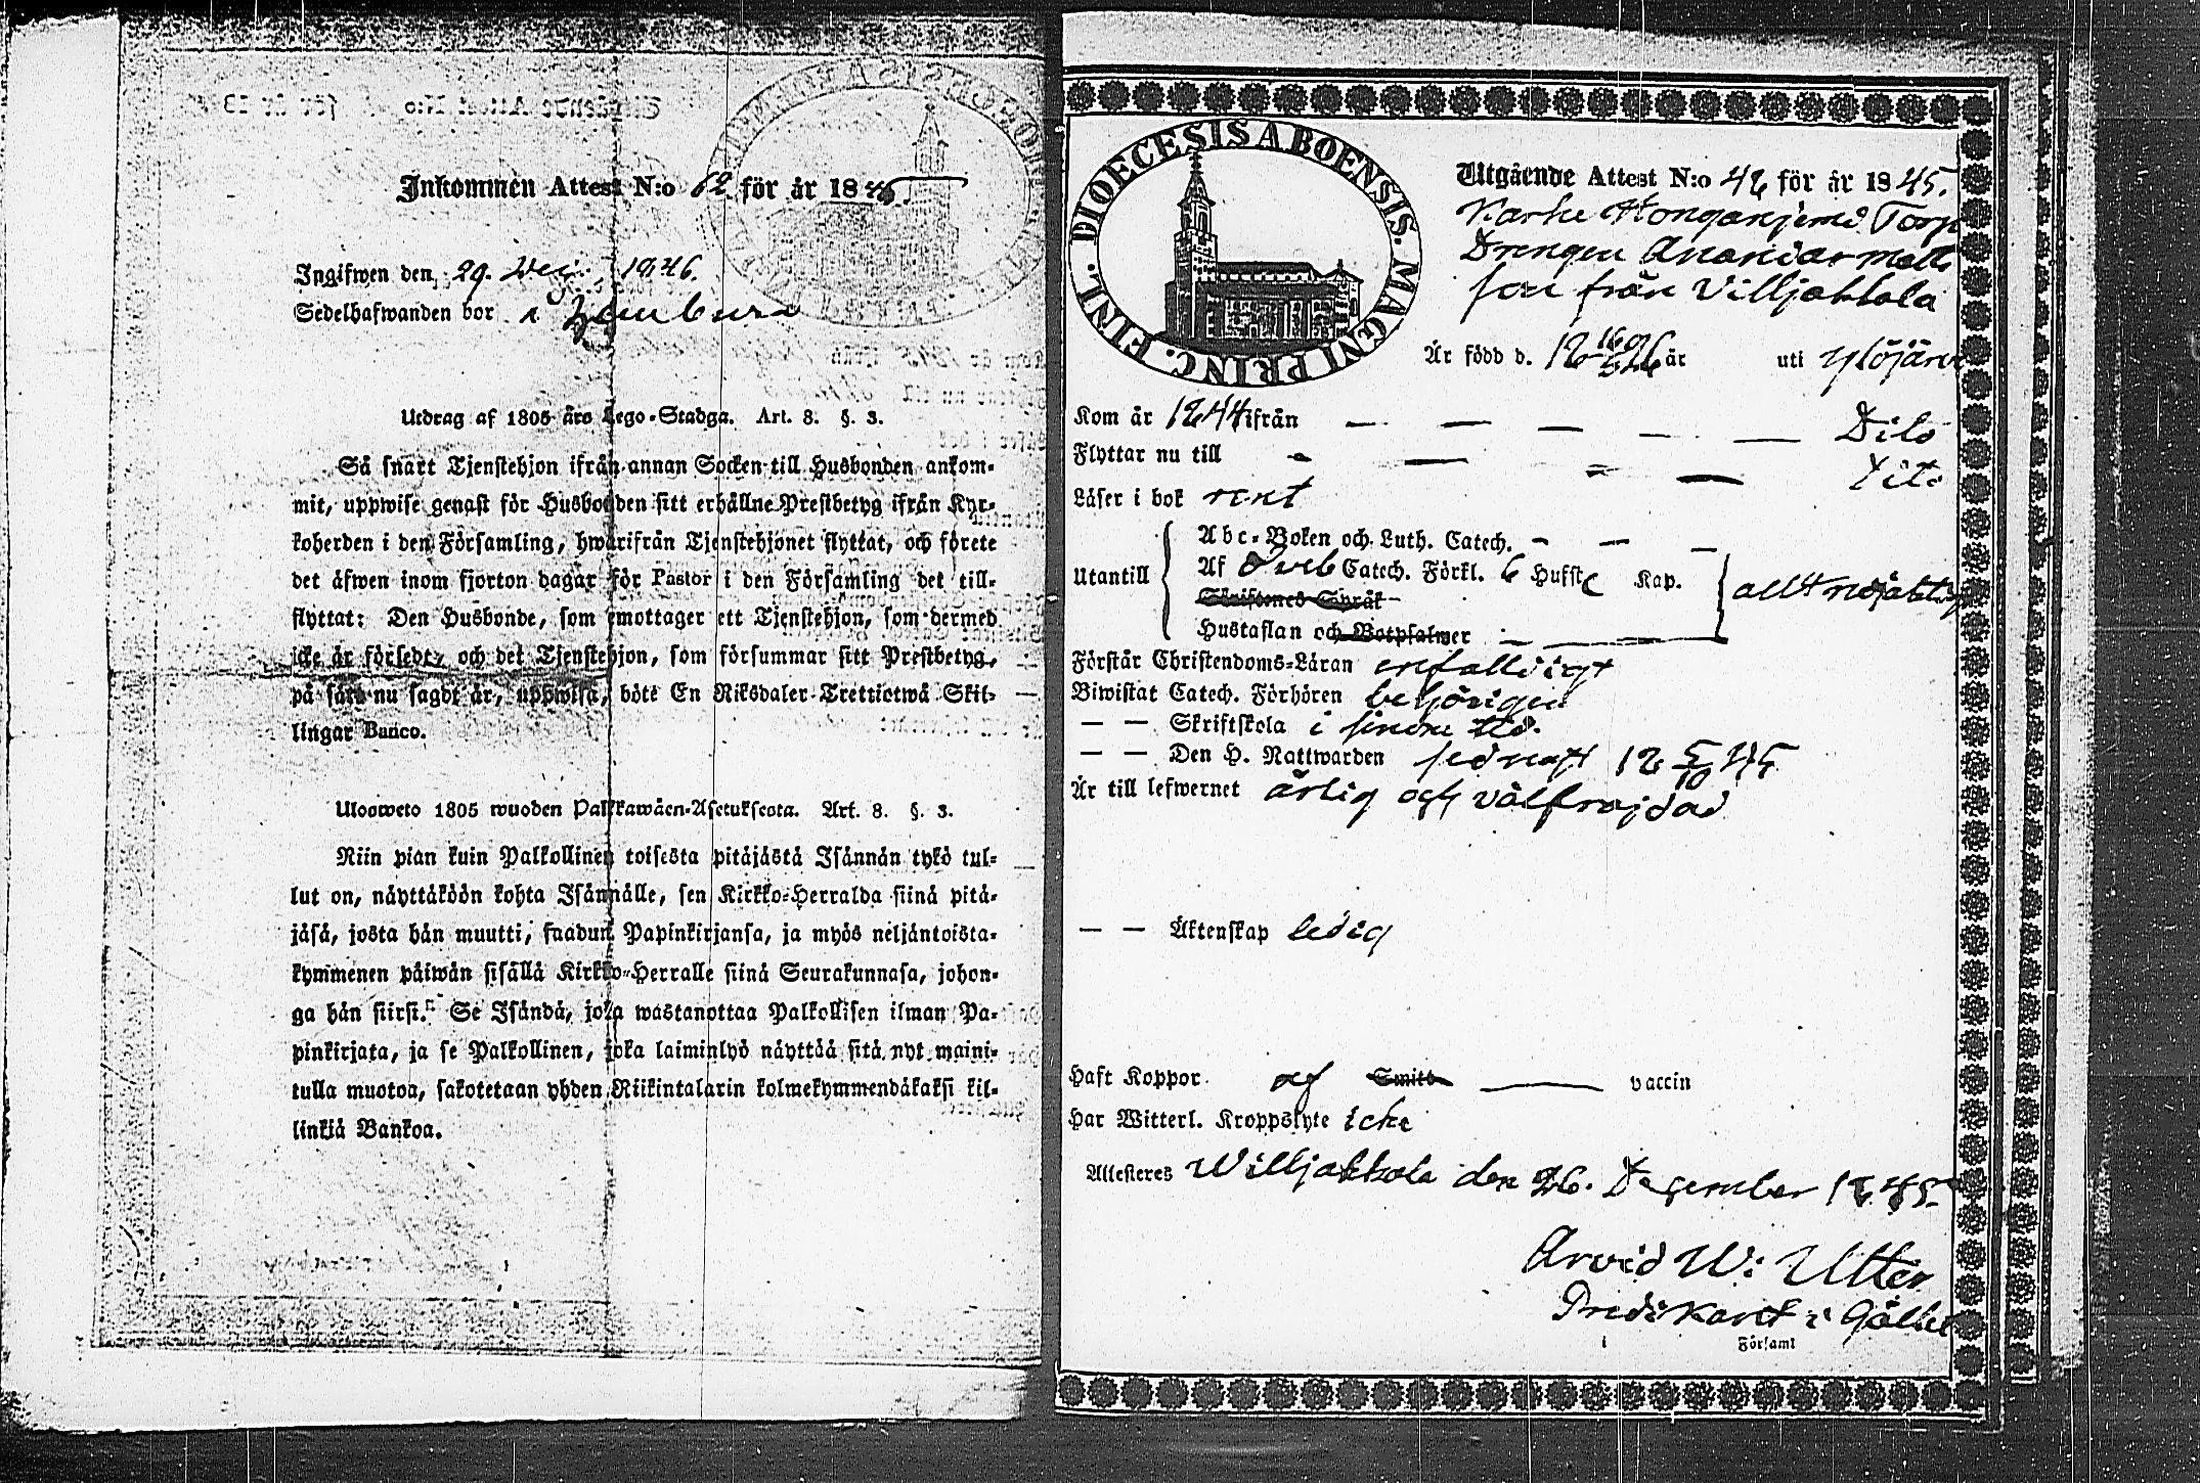 Inkommen Attest N:o 62 för år 1845.
Ingifwen den 29. 1846.
Sedelhafwanden bor i
Utdrag af 1805 års Lego-Stadga. Art. 8. §. 3.
Så snart Tjenstehjon ifrån annan Socken till Husbonden ankom-
mit, uppwise genast för Husbonden sitt erhållne Prestbetyg ifrån Kyr-
koherden i den Församling, hwarifrån Tjenstehjonet flyttat, och förete
det äfwen inom fjorton dagar för Pastor i den Församling det till-
flyttat: Den Husbonde, som emottager ett Tjenstehjon, som dermed
icke är försedt, och det Tjenstehjon, som försummar sitt Prestbetyg,
på sätt nu sagdt är, uppwisa, böte En Riksdaler Trettiotwå Skil-
lingar Banco.
Ulosweto 1805 wuoden Palkkawäen-Asetuksesta. Art. 8. §. 3.
Niin pian kuin Palkollinen toisesta pitäjästä Isännän tykö tul-
lut on, näyttäköön kohta Isännälle, sen Kirkko-Herralda siinä pitä-
jäsä, josta hän muutti, saadun Papinkirjansa, ja myös neljäntoista-
kymmenen päiwän sisällä Kirkko-Herralle siinä Seurakunnasa, johon-
ga hän siirsi. Se Isändä, joka wastanottaa Palkollisen ilman Pa-
pinkirjata, ja se Palkollinen, joka laiminlyö näyttää sitä nyt maini-
tulla muotoa, sakotetaan yhden Riikintalarin kolmekymmendäkaksi kil-
linkiä Bankoa.
DIOECESIS ABOENSIS. MAGNI PRINC. FINL.
Utgående Attest N:o 42 för år 1845.
Karhe Torp
Drengen
son från Villjakkala
Är född d. 18 16/5 26 år uti Ylöjärvi
Kom år 1844 ifrån — — — — — Dito
Flyttar nu till — — — — Dito
Läser i bok rent
Utantill
Abc-Boken och Luth. Catech. — — —
Af Sveb Catech. Förkl. 6 Hufst Kap. allt nöjaktigt
Skriftenes Språk
Hustaflan och Botpsalmer — —
Förstår Christendoms-Läran enfalldigt
Biwistat Catech. Förhören behörigen
— — Skriftskola i sinom tid.
— — Den H. Nattwarden sednast 18 5/10 45
Är till lefwernet ärlig och välfrejdad
— — Äktenskap ledig
Haft Koppor af Smitt — vaccin
Har Witterl. Kroppslyte icke
Attesteres Willjakkala den 26. December 1845.
Arvid W: Utter
Predikant i
i Församl